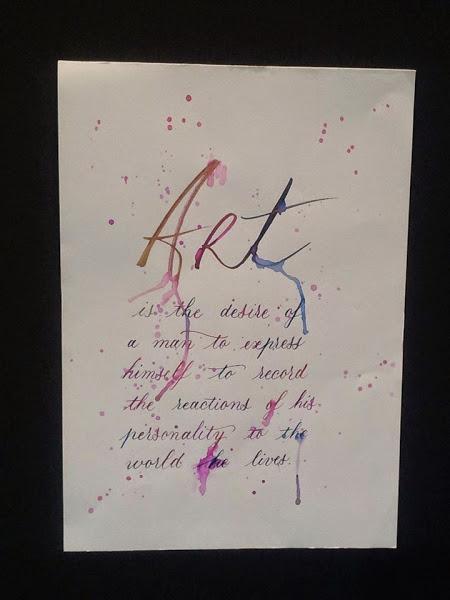 Art
is the desire of
a man to express
himself to record
the reactions of his
personality to the
world he lives.